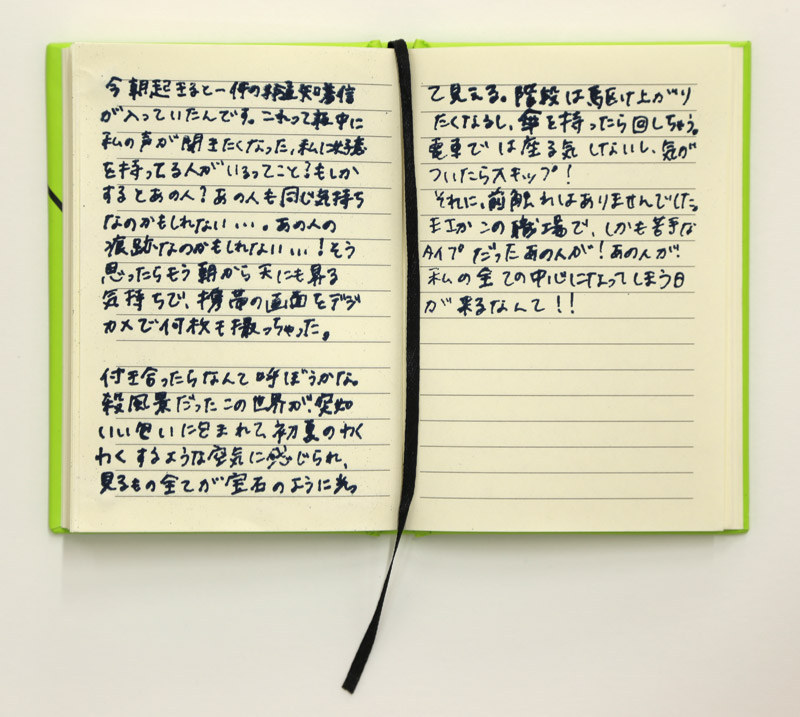 今朝起きると一件の非通知着信
が入っていたんです。これって夜中に
私の声が聞きたくなった、私に好意
を持ってる人がいるってこと？もしか
するとあの人？あの人も同じ気持ち
なのかもしれない…。あの人の
痕跡なのかもしれない…！そう
思ったらもう朝から天にも昇る
気持ちで、携帯の画面をデジ
カメで何枚も撮っちゃった。
付き合ったらなんて呼ぼうかな。
殺風景だったこの世界が、突如
いい匂いに包まれて、初夏のわく
わくするような空気に感じられ、
見るもの全てが宝石のように光っ
て見える。階段は駆け上がり
たくなるし、傘を持ったら回しちゃう。
電車では座る気しないし、気が
ついたらスキップ！
それに、前触れはありませんでした。
まさかこの職場で、しかも苦手な
タイプだったあの人が！あの人が
私の全ての中心になってしまう日
が来るなんて！！